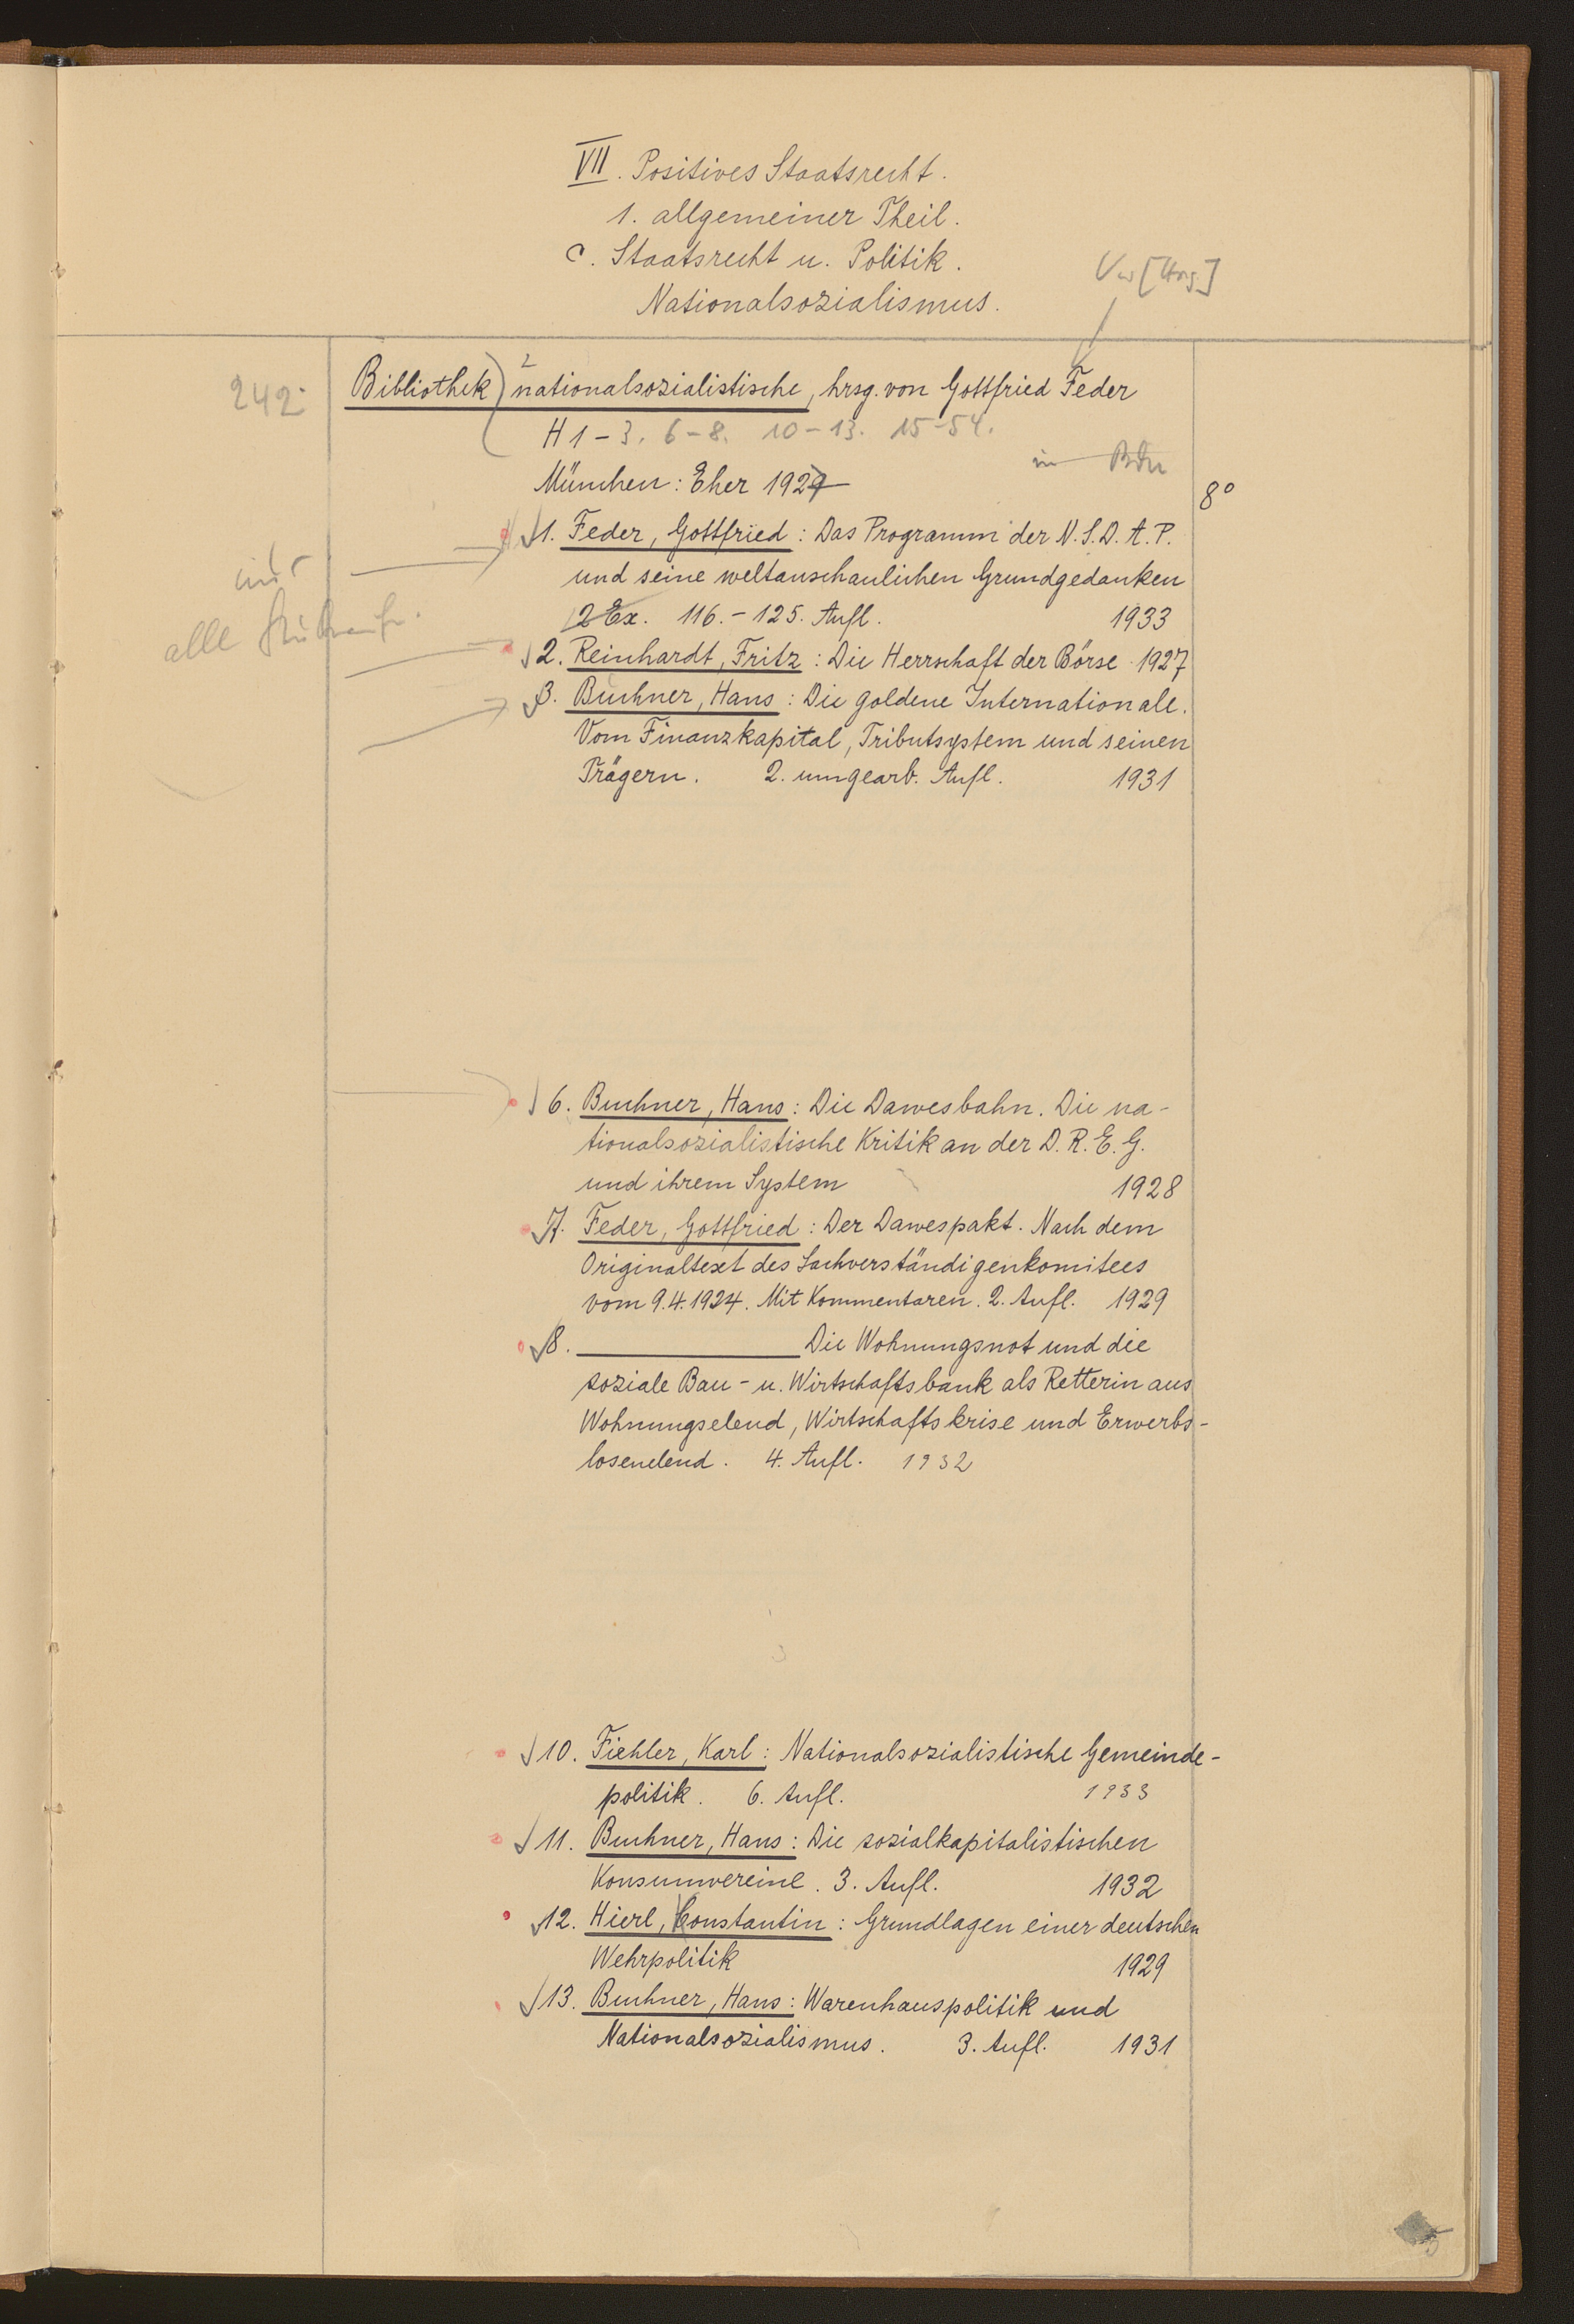 VII. Positives Staatsrecht.
1. allgemeiner Theil.
c. Staatsrecht u. Politik.
Nationalsozialismus.
242.
Bibliothek, nationalsozialistische, hrsg. von Gottfried Feder
H 1 - 3. 6 - 8. 10 - 13. 15 - 54.
München: Eher 192
8°
1. Feder, Gottfried: Das Programm der N.S.D.A.P.
und seine weltanschaulichen Grundgedanken
2 Ex. 116. - 125. Aufl. 1933
alle
2. Reinhardt, Fritz: Die Herrschaft der Börse 1927
3. Buchner, Hans: Die goldene Internationale.
Vom Finanzkapital, Tributsystem und seinen
Trägern. 2. umgearb. Aufl. 1931
6. Buchner, Hans: Die Dawesbahn. Die na-
tionalsozialistische Kritik an der D.R.E.G.
und ihrem System 1928
7. Feder, Gottfried: Der Dawespakt. Nach dem
Originaltext des Sachverständigenkomitees
vom 9.4.1924. Mit Kommentaren. 2. Aufl. 1929
8. ——— Die Wohnungsnot und die
soziale Bau- u. Wirtschaftsbank als Retterin aus
Wohnungselend, Wirtschaftskrise und Erwerbs-
losenelend. 4. Aufl. 1932
10. Fiehler, Karl: Nationalsozialistische Gemeinde-
politik. 6. Aufl. 1933
11. Buchner, Hans: Die sozialkapitalistischen
Konsumvereine. 3. Aufl. 1932
12. Hierl, Constantin: Grundlagen einer deutschen
Wehrpolitik 1929
13. Buchner, Hans: Warenhauspolitik und
Nationalsozialismus. 3. Aufl. 1931